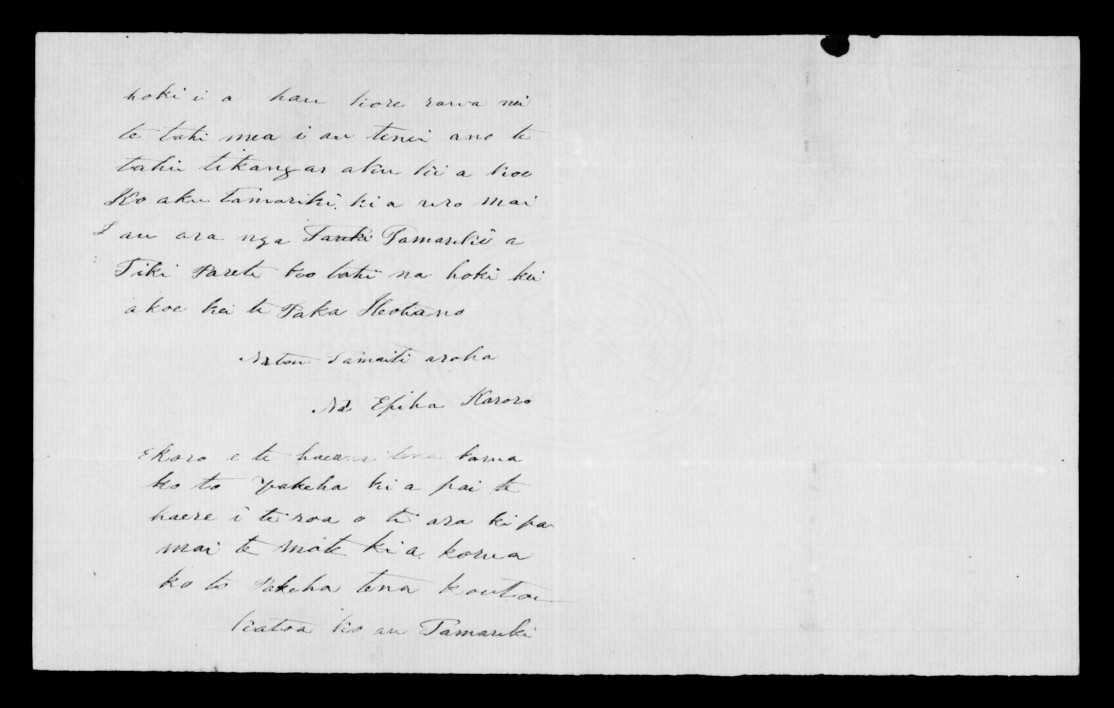 hoki i a hau kore rawa nei
te tahi mea i au tenei ano te
tahi tikanga aku ki a koe
Ko aku tamariki kia uro mai
I au ara nga Tamariki a
Tiki Parete ko tahi na hoki kei
akoe kei te Paka
Natou Tamaiti aroha
Na Epiha Karoro
Ekoro e te haere tena korua
ko to Pakeha ki a pai te
haere i te roa o te ara ki pa
mai te mate ki a korua
ko to Pakeha tena koutou
katoa ko au Tamariki